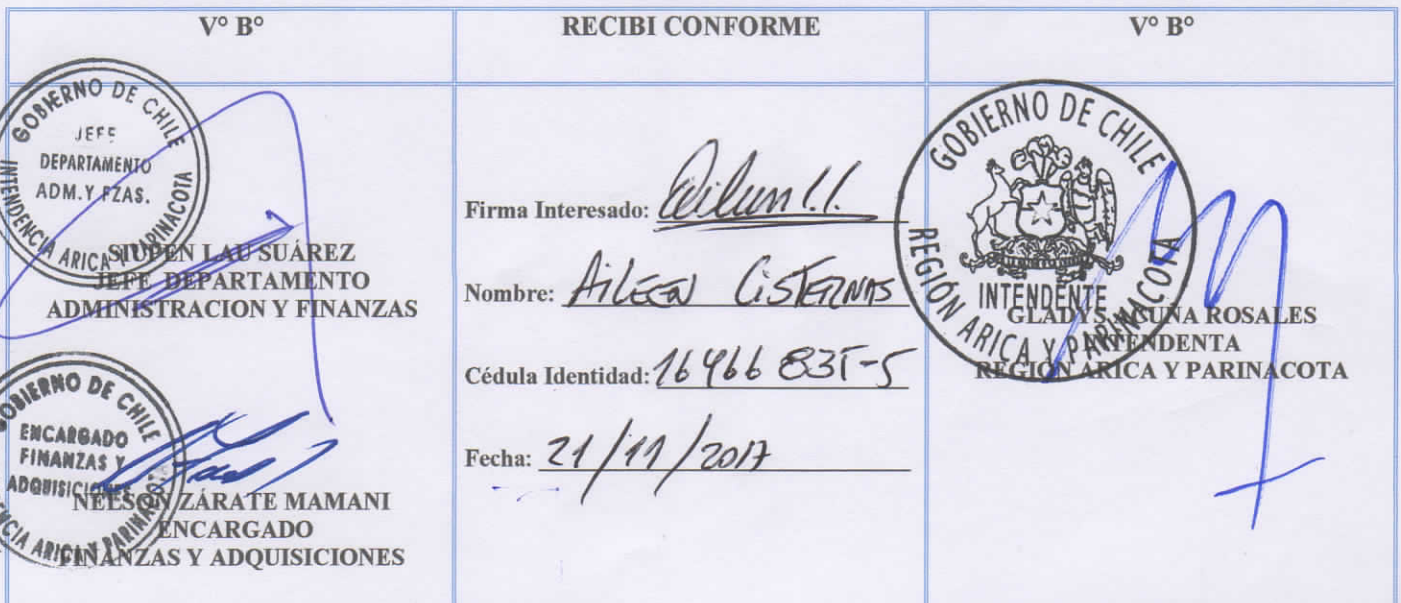 V° B°
RECIBI CONFORME
V° B°
GOBIERNO DE CHILE
JEFE
DEPARTAMENTO
ADM. Y FZAS.
INTENDENCIA ARICA Y PARINACOTA
SIUPEN LAU SUÁREZ
JEFE DEPARTAMENTO
ADMINISTRACION Y FINANZAS
GOBIERNO DE CHILE
ENCARGADO
FINANZAS Y
ADQUISICIONES
ENCIA ARICA Y PARINACO
NELSON ZÁRATE MAMANI
ENCARGADO
FINANZAS Y ADQUISICIONES
Firma Interesado:
Nombre: AiLEEN CiSTERNAS
Cédula Identidad: 16466 835-5
Fecha: 21/11/2017
GOBIERNO DE CHILE
INTENDENTE
REGIÓN ARICA Y PARINACOTA
GLADYS ACUÑA ROSALES
INTENDENTA
REGION ARICA Y PARINACOTA